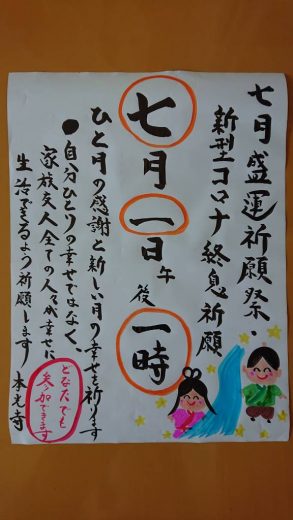 七月盛運祈願祭・
新型コロナ終息祈願
七月一日午後一時
ひと月の感謝と新しい月の幸せを祈ります
●自分ひとりの幸せではなく、
家族友人全ての人々が幸せに
生活できるよう祈願します 本光寺
どなたでも
参加できます